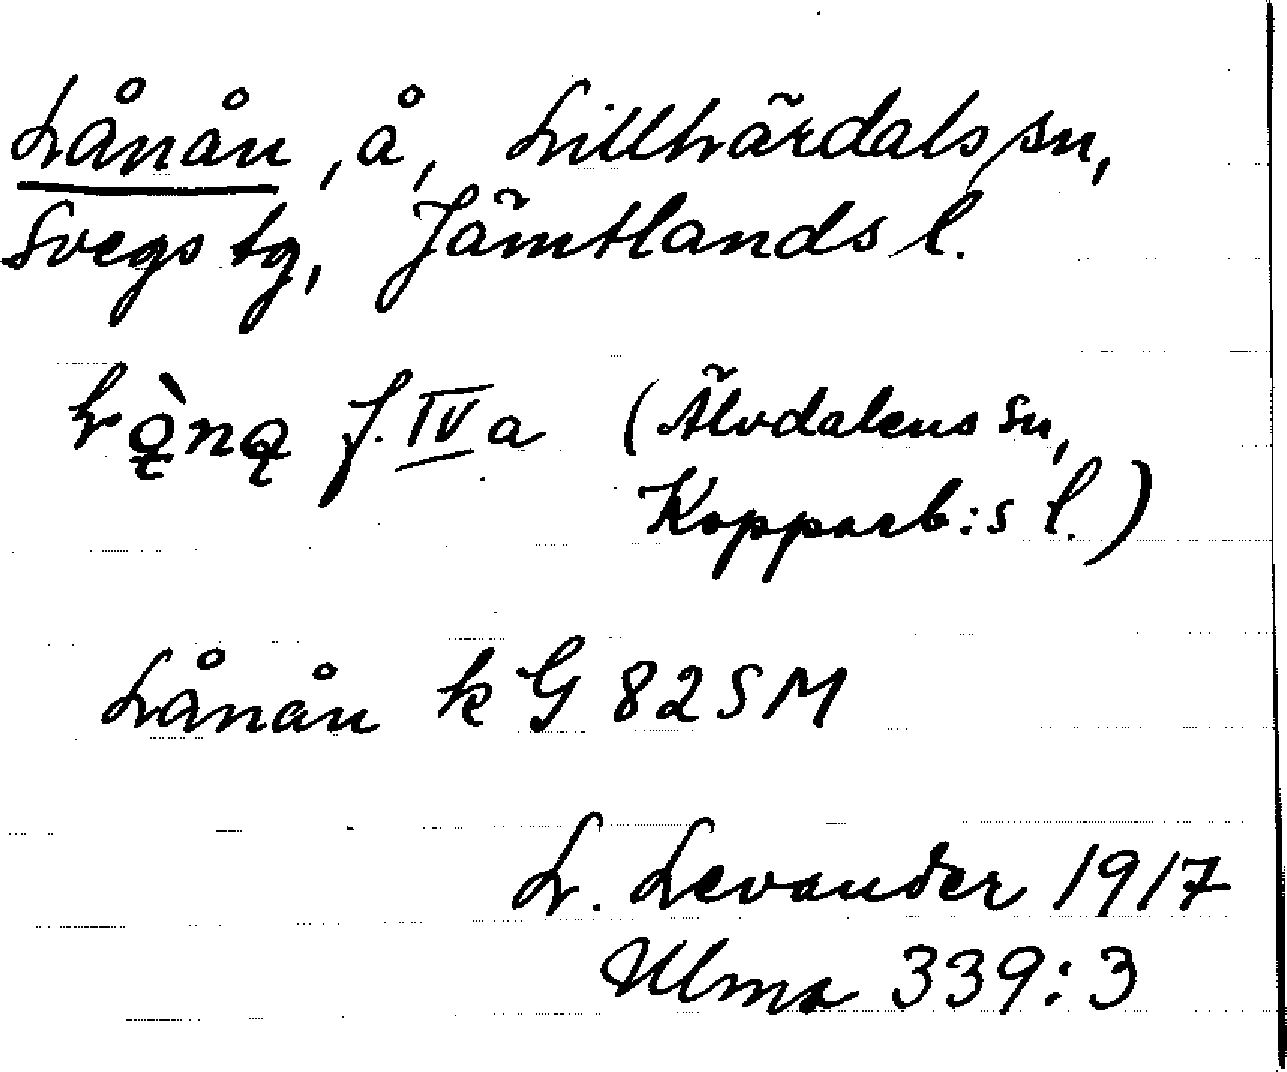 Lånån, å, Lillhärdals sn,
Svegs tg, Jämtlands l.
f. IV a (Älvdalens sn,
Kopparb:s l.)
Lånån k G 82 SM
L. Levander 1917
Ulma 339:3